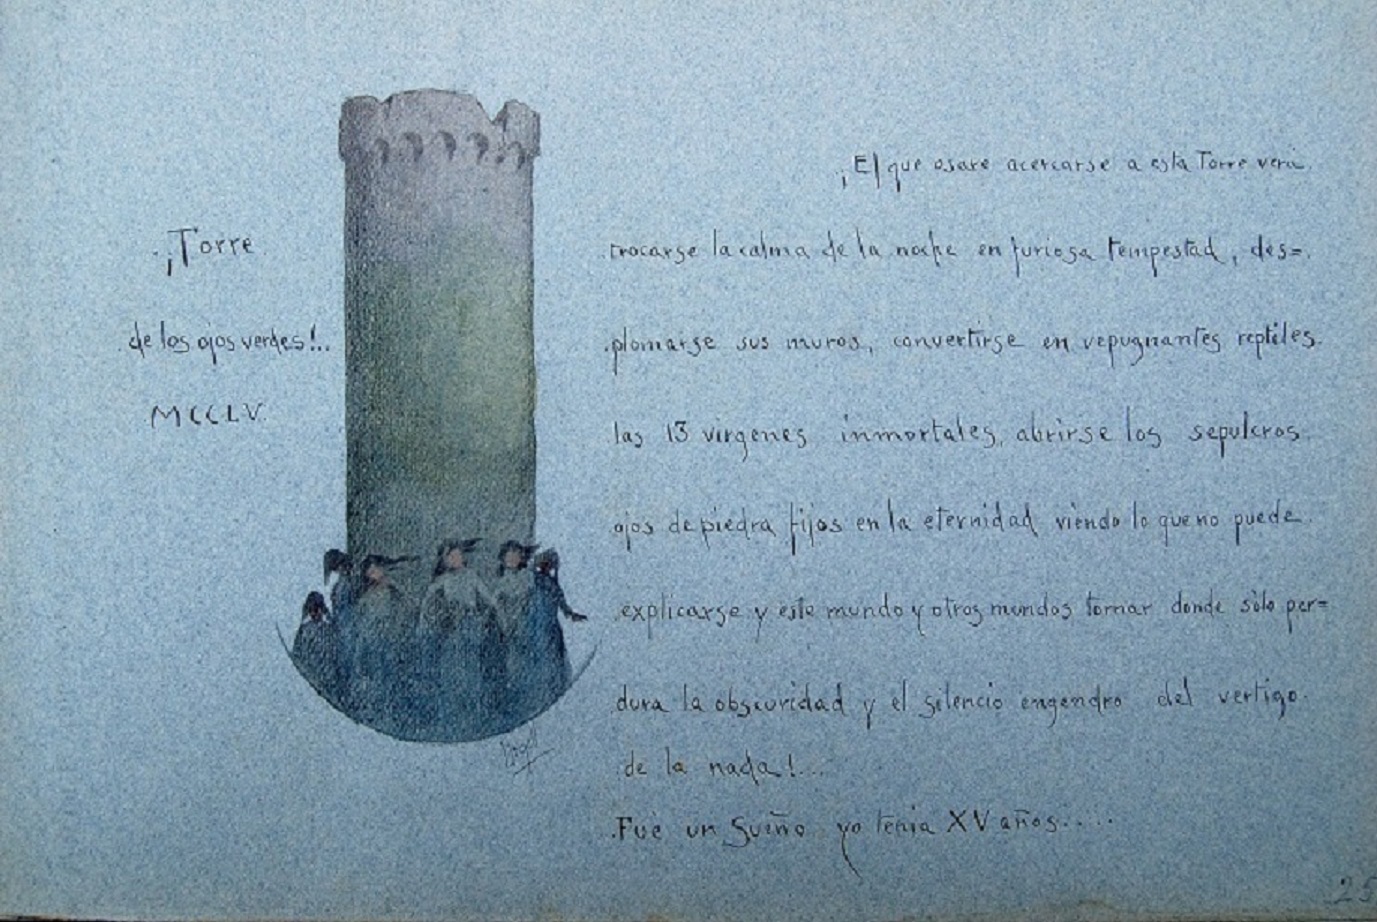 ¡Torre
de los ojos verdes!..
MCCLV.
¡El que osare acercarse a esta Torre verá
trocarse la calma de la noche en furiosa tempestad, des=
plomarse sus muros, convertirse en repugnantes reptiles
las 13 virgenes inmortales, abrirse los sepulcros
ojos de piedra fijos en la eternidad viendo lo que no puede
explicarse y este mundo y otros mundos tornar donde sólo per=
dura la obscuridad y el silencio engendro del vertigo
de la nada!...
Fue un Sueño yo tenia XV años.....
25